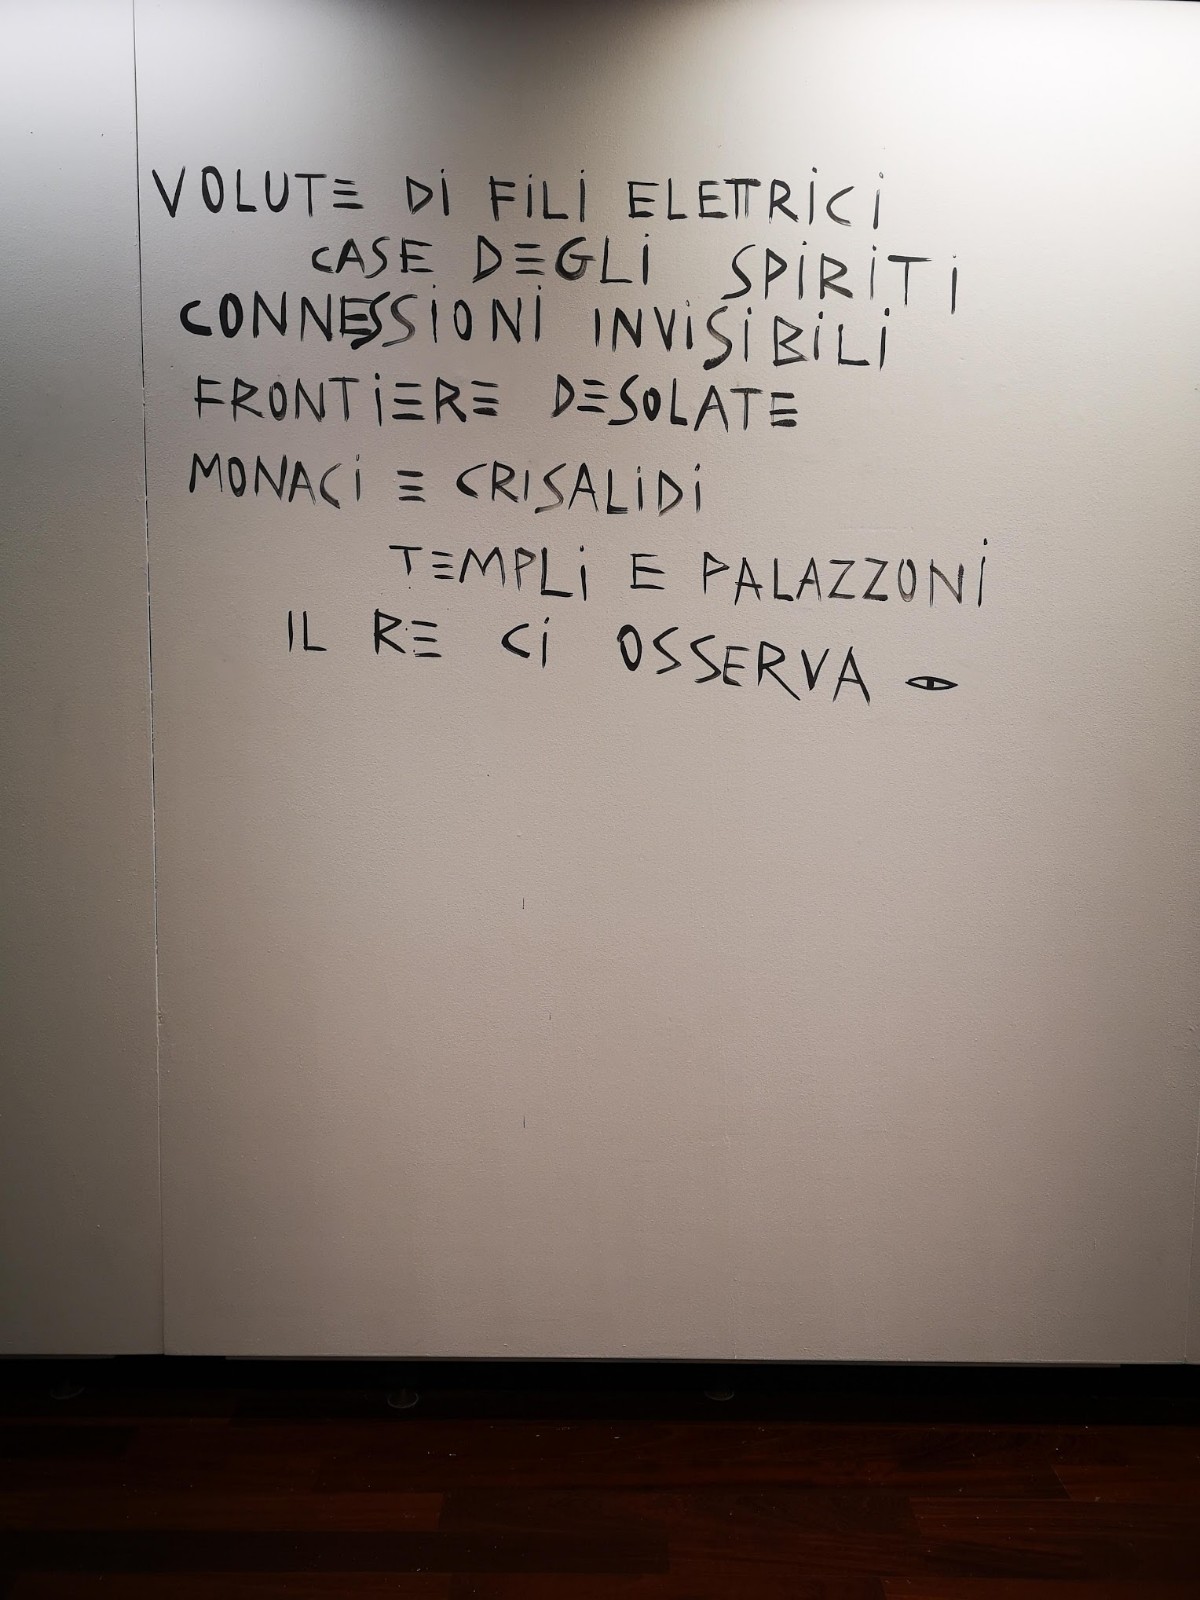 VOLUTE Di FiLi ELETTRiCi
CASE DEGLi SPiRiTi
CONNESSiONi INViSiBiLi
FRONTiERE DESOLATE
MONACi E CRISALiDi
TEMPLi E PALAZZONi
IL RE Ci OSSERVA